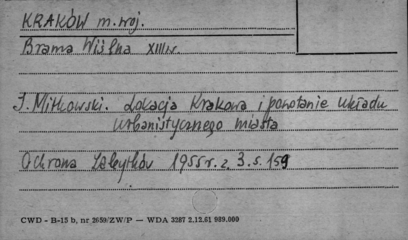 KRAKÓW m. woj.
Brama Wiślna XIII w.
J. Mitkowski. Lokacja Krakowa i powstanie układu
urbanistycznego miasta
Ochrona Zabytków 1955 r. z. 3. s. 159
CWD - B-15 b, nr 2659/ZW/P — WDA 3287 2.12.61 989.000